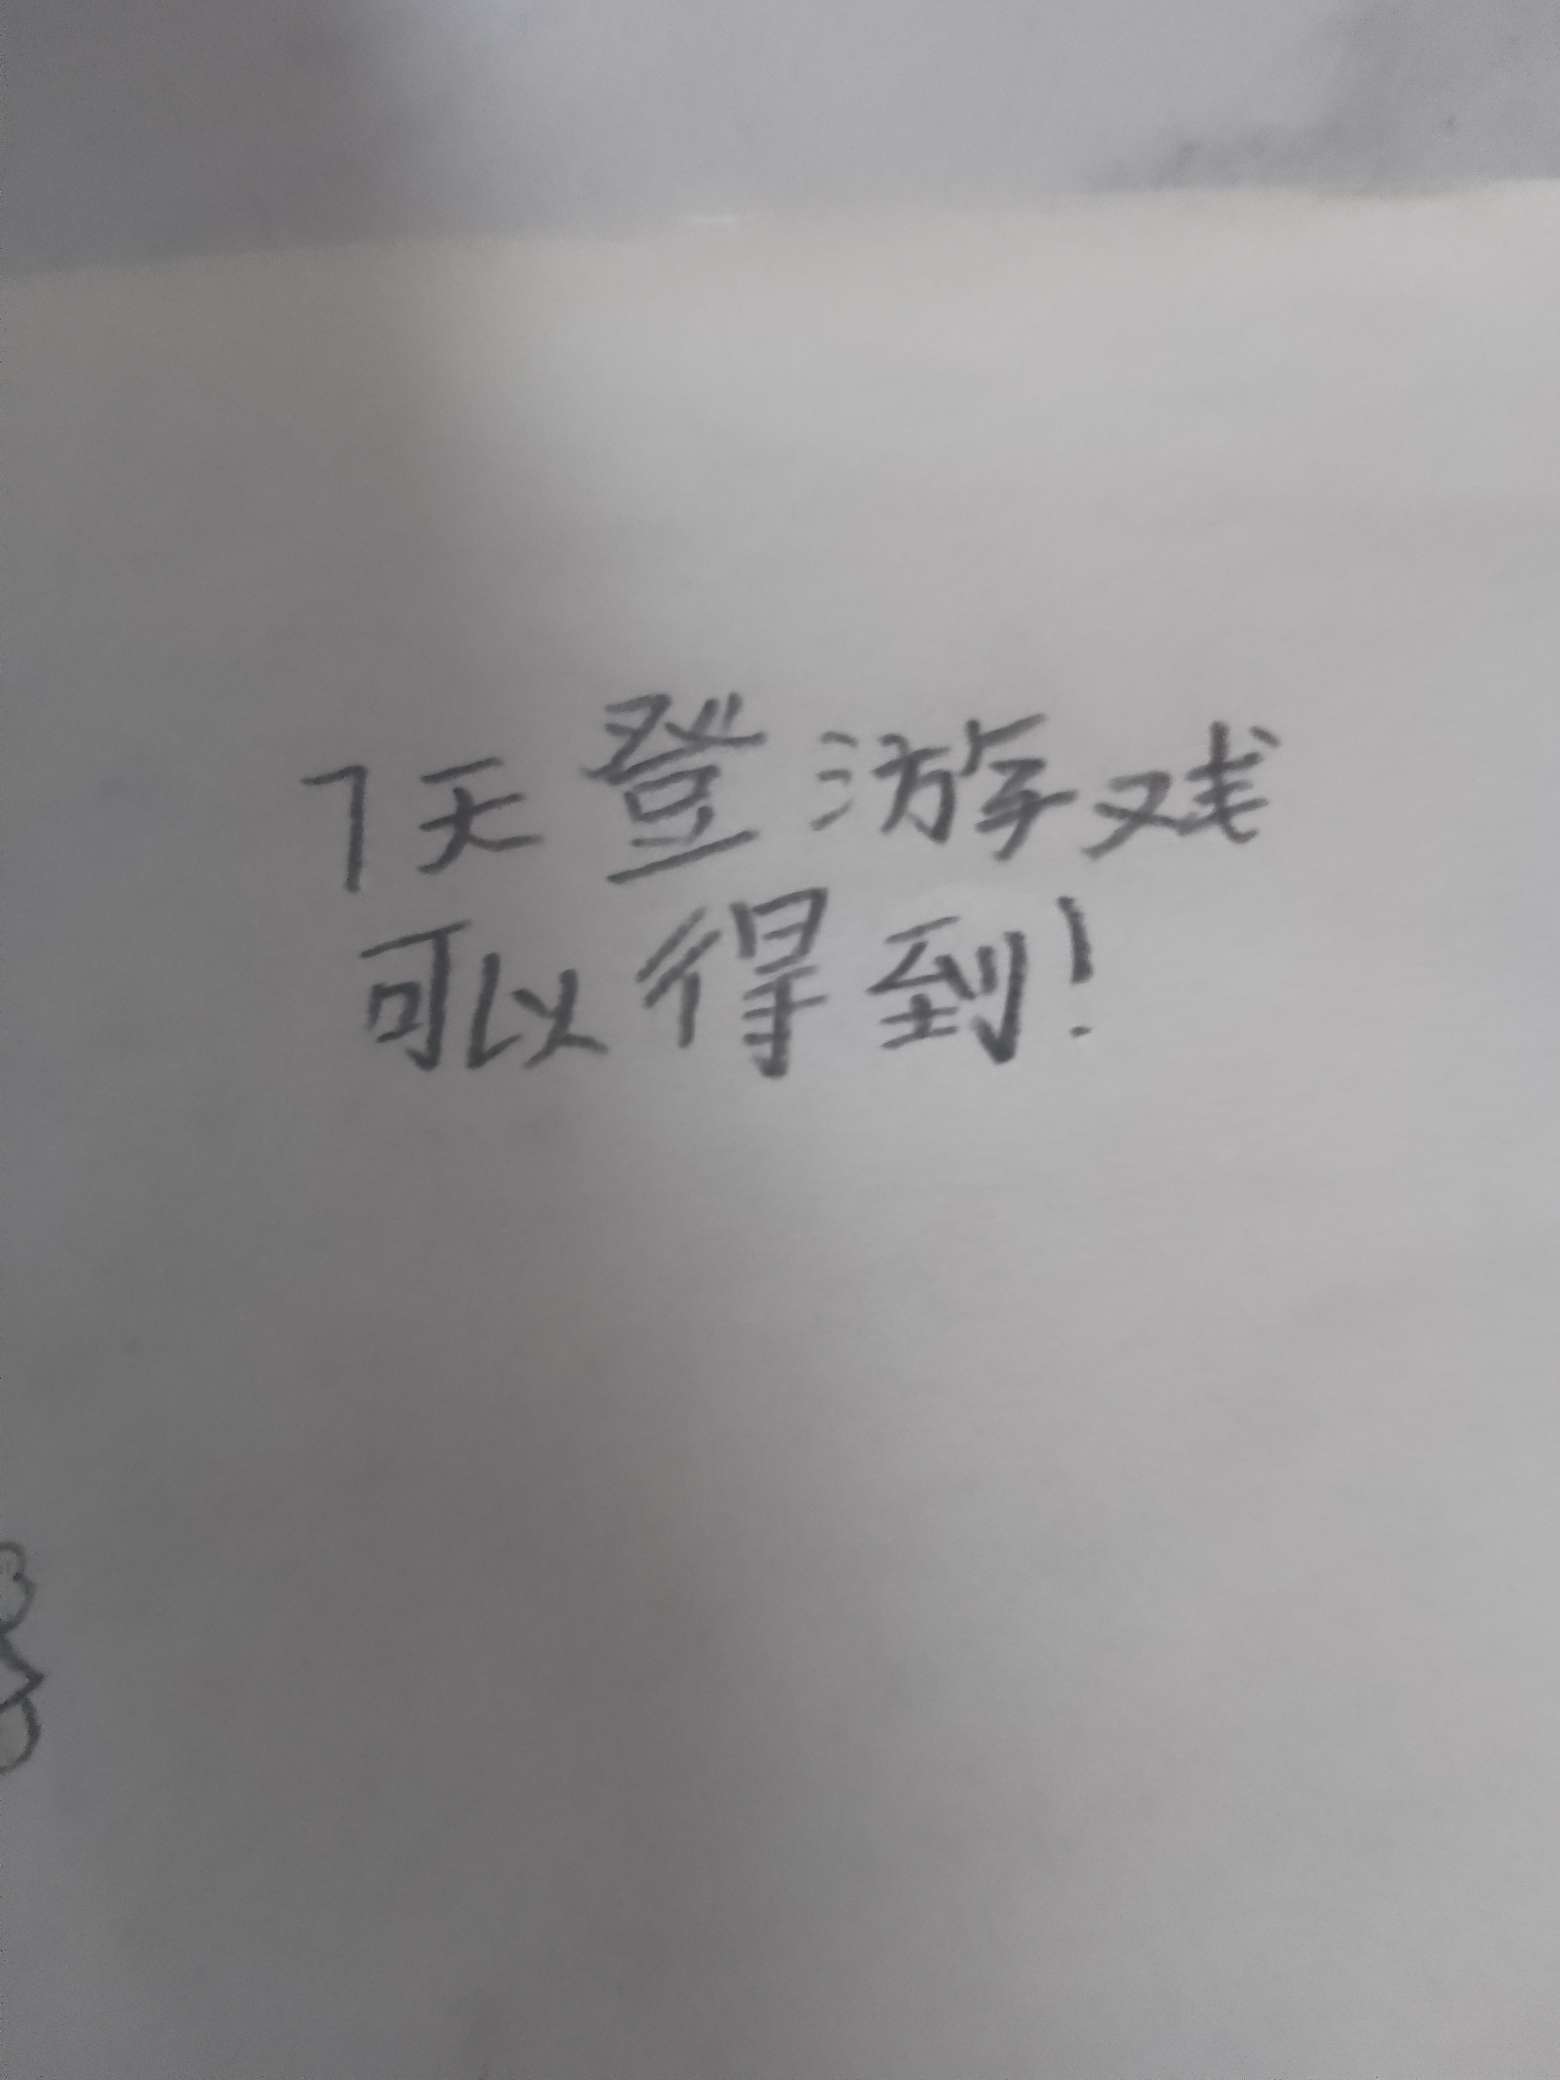 7天登游戏
可以得到!